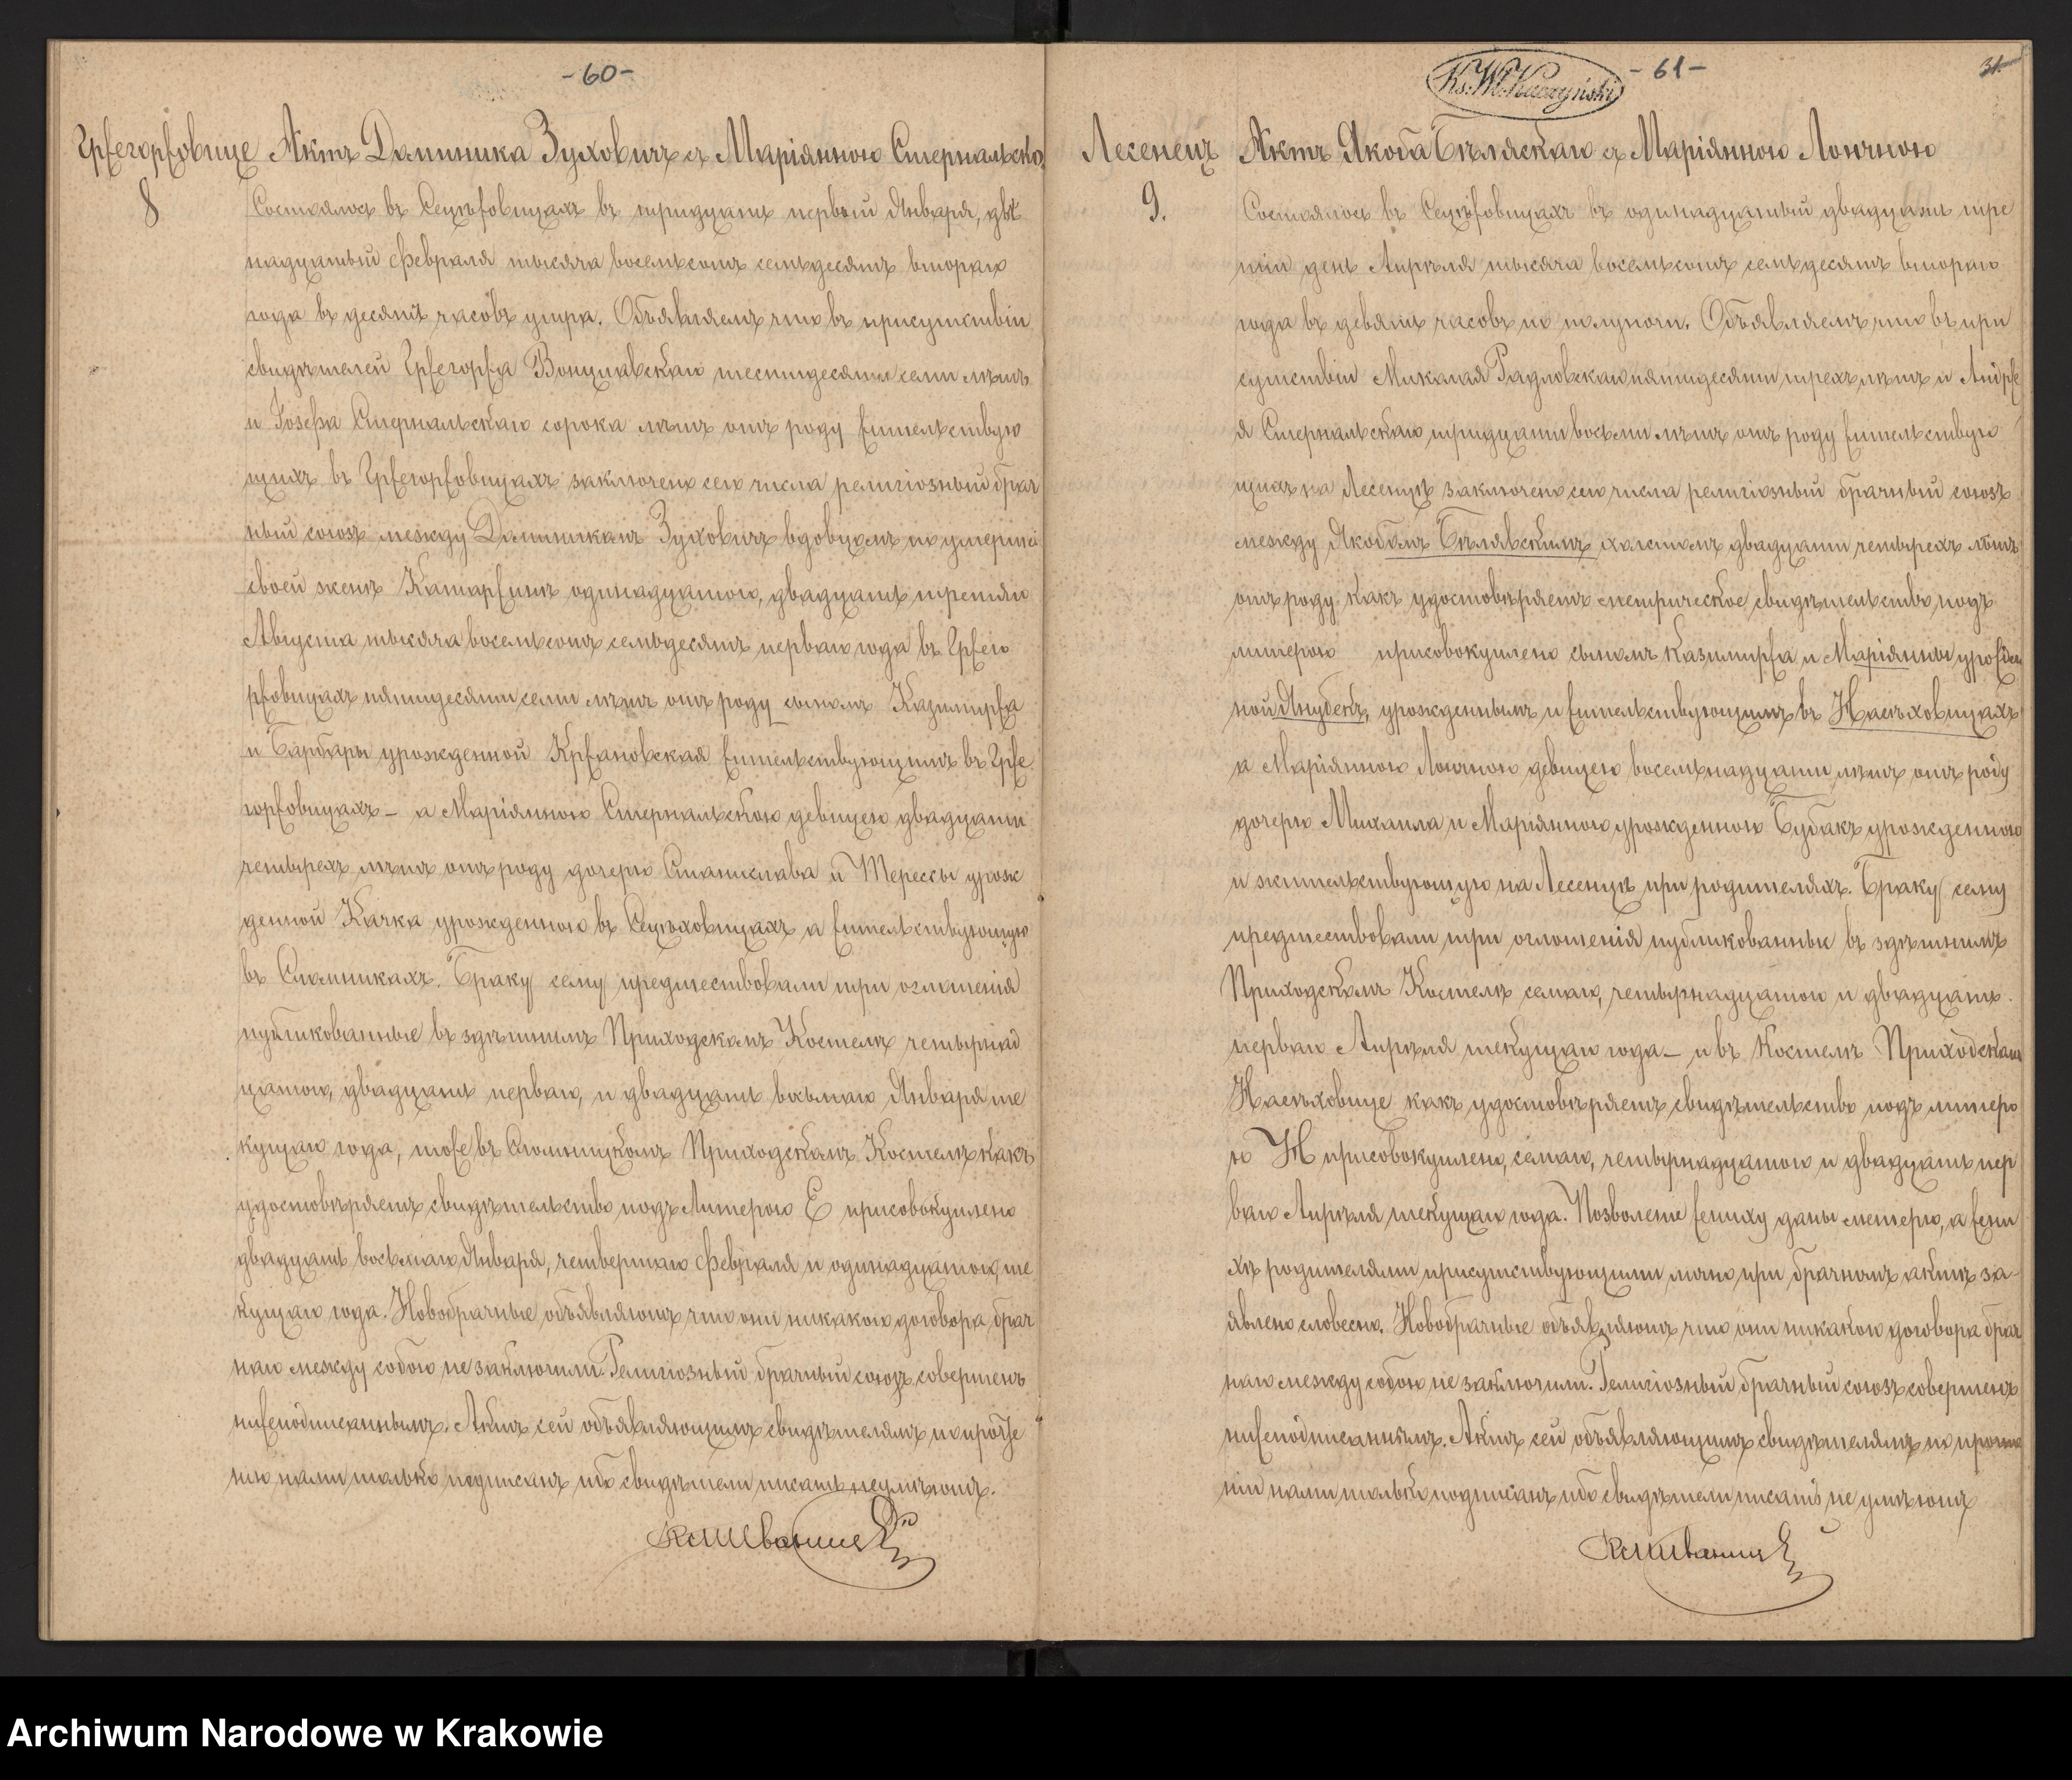 -60-
Грfегорfовице Актъ Даминика Зуховичъ съ Маріянною Стернальско
8
Состоялось въ Сецѣfовицахъ въ тридцать первый Января, двѣ
надцатый Февраля тысяча восемьсотъ семьдесятъ втораго
года въ десять часовъ утра. Объявляемъ что въ присутствіи
свидѣтелей Грfегорfа Вонцлавскаго шестидесяти семи лѣтъ
и Іозефа Стернальскаго сорока лѣтъ отъ роду fительствую
щихъ въ Грfегорfовицахъ заключено сего числа религіозный брач
ный союзъ между Даминикамъ Зуховичъ вдовцомъ по умершой
своей женѣ Катарfинѣ одинадцатого, двадцать третяго
Августа тысяча восемьсотъ семьдесятъ перваго года въ Грfего
рfовицахъ пятидесяти семи лѣтъ отъ роду сыномъ Казимирfа
и Барбары урожденной Крfановская fительствующимъ въ Грfе
горfовицахъ – а Маріянною Стернальскою девицею двадцати
четырехъ лѣтъ отъ роду дочерю Станислава и Терессы урож
денной Качка урожденною въ Сецѣховицахъ а fительствующую
въ Сломникахъ. Браку сему предшествовали три оглошенія
публикованные въ здѣшнимъ Приходскамъ Костелѣ четырнад
цатого, двадцать перваго, и двадцать восьмаго Января те
кущаго года, тоfе въ Сломницкомъ Приходскамъ Костелѣ какъ
удостовѣряетъ свидѣтельство подъ Литерою Е присовокуплено
двадцать восьмаго Января, четвертаго Февраля и одинадцатого те
кущаго года. Новобрачные объявляютъ что они никакого договора брач
наго между собою не заключили. Религіозный брачный союзъ совершенъ
ниfеподписаннымъ. Актъ сей объявляющимъ свидѣтелямъ по прочте
нію нами только подписанъ ибо свидѣтели писать неумѣютъ.
Ks. Wł. Kuczyński
-61-
31
Лесенецъ Актъ Якоба Бѣляскаго съ Маріянною Лончною
9.
Состоялось въ Сецѣfовицахъ въ одинадцатый двадцать тре
тій день Апрѣля тысяча восемьсотъ семьдесятъ втораго
года въ девять часовъ по полуночи. Объявляемъ что въ при
сутствіи Миколая Радловскаго пятидесяти трехъ лѣтъ и Андрfе
я Стернальскаго тридцати восьми лѣтъ отъ роду fительствую
щихъ на Лесенцѣ заключено сего числа религіозный брачный союзъ
между Якобомъ Бѣлявскимъ холстомъ двадцати четырехъ лѣтъ
отъ роду какъ удостовѣряетъ метрическое свидѣтельство подъ
литерою присовокуплено сыномъ Казимирfа и Маріянны уроfден
ной Янубекъ, урожденнымъ и fительствующимъ въ Насѣховицахъ
а Маріянною Лончною девицею восемьнадцати лѣтъ отъ роду
дочерю Михаила и Маріянною урожденною Будакъ урожденною
и жительствующую на Лесенцѣ при родителяхъ. Браку сему
предшествовали три оглошенія публикованные въ здѣшнимъ
Приходскомъ Костелѣ семаго, четырнадцатого и двадцать
перваго Апрѣля текущаго года – и въ Костелѣ Приходскамъ
Насѣховице какъ удостовѣряетъ свидѣтельство подъ литеро
ю Ж присовокуплено, семаго, четырнадцатого и двадцать пер
ваго Апрѣля текущаго года. Позволеніе fениху даны метерю, а fени
хъ родителями присутствующими лично при брачнымъ актѣ за-
явлено словесно. Новобрачные объявляютъ что они никакого договора брач
наго между собою не заключили. Религіозный брачный союзъ совершенъ
ниfеподписаннымъ. Актъ сей объявляющимъ свидѣтелямъ по прочте
ніи нами только подписанъ ибо свидѣтели писать не умѣютъ
Archiwum Narodowe w Krakowie